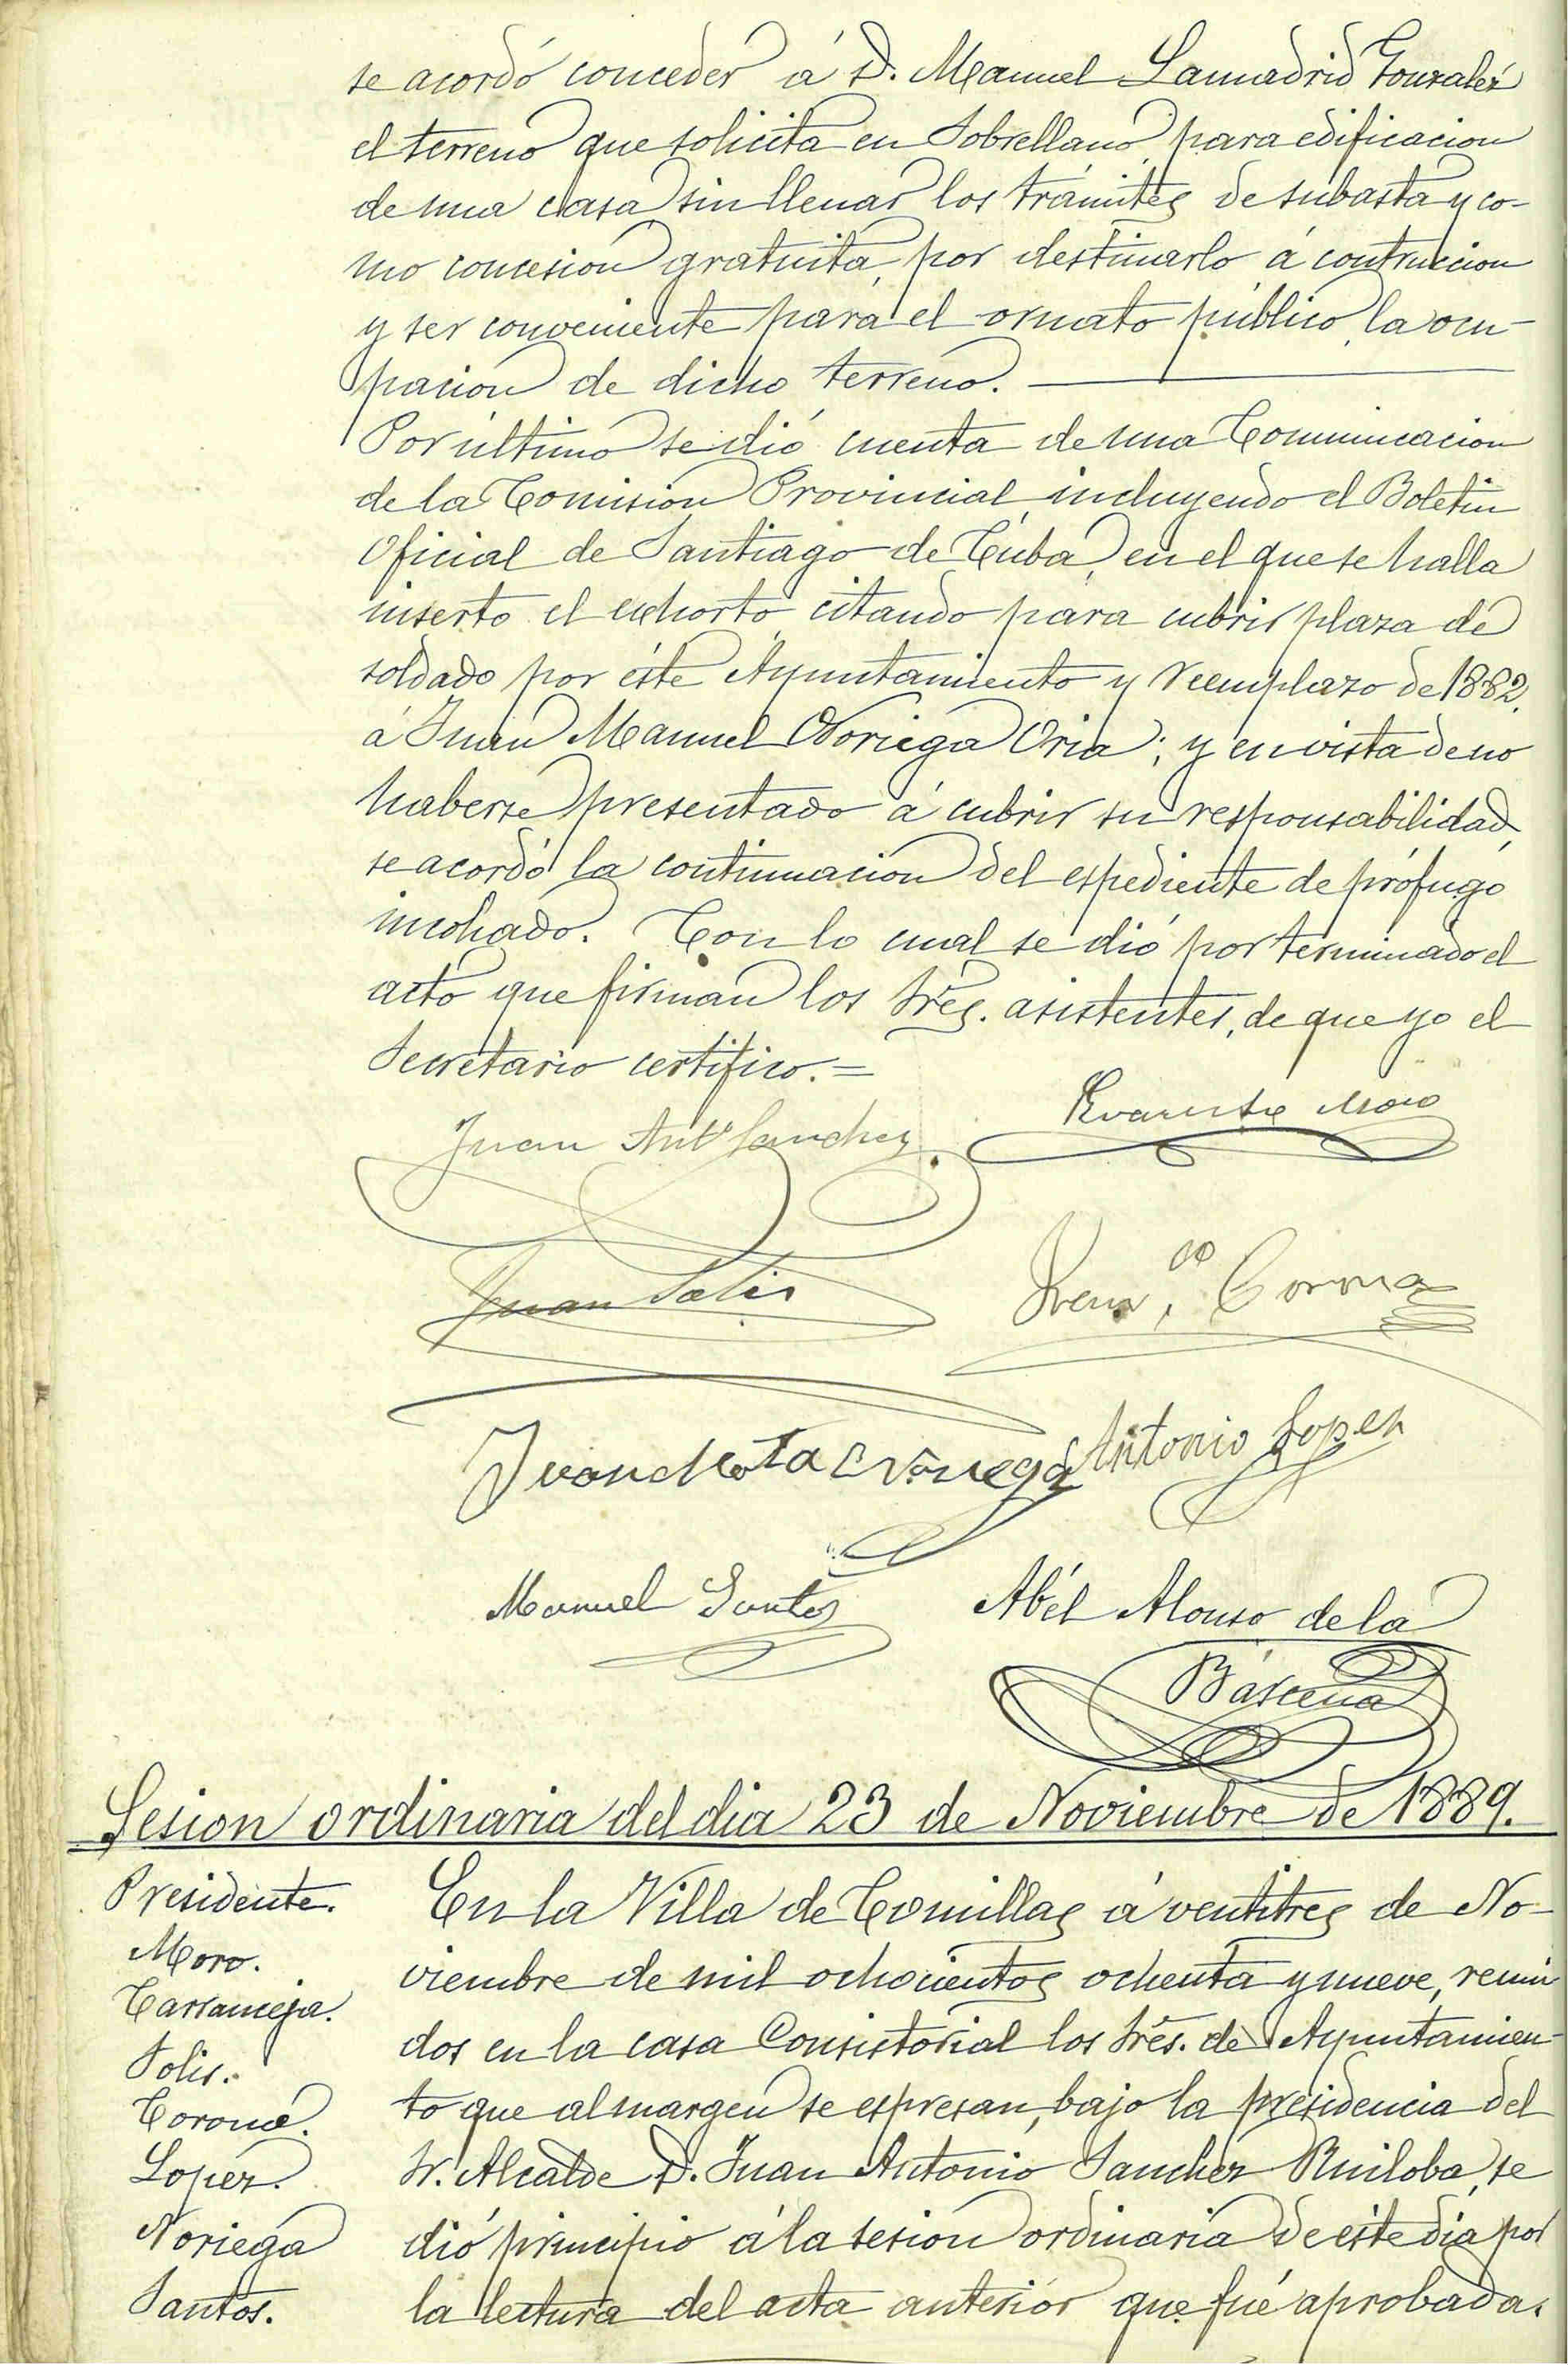 se acordó conceder á D. Manuel Lamadrid Gonzalez
el terreno que solicita en Sobrellano para edificacion
de una casa sin llenar los trámites de subasta y co-
mo concesion gratuita, por destinarlo á contruccion
y ser conveniente para el ornato público, la ocu-
pacion de dicho terreno.
Por último se dió cuenta de una Comunicacion
de la Comision Provincial, incluyendo el Boletin
Oficial de Santiago de Cuba, en el que se halla
inserto el exhorto citando para cubrir plaza de
soldado por éste Ayuntamiento y Reemplazo de 1882,
á Juan Manuel Noriega Oria; y en vista de no
haberse presentado á cubrir su responsabilidad,
se acordó la continuacion del espediente de prófugo
incohado. Con lo cual se dió por terminado el
acto que firman los Sres. asistentes, de que yo el
Secretario certifico.=
Juan Antº Sanchez
Evaristo Moro
Juan Solis
Francº Corona
Juan Noriega
Antonio Lopez
Manuel Santos
Abél Alonso de la
Bárcena
Sesion ordinaria del dia 23 de Noviembre de 1889.
Presidente.
Moro.
Carranceja.
Solis.
Corona.
Lopez.
Noriega
Santos.
En la Villa de Comillas á ventitres de No-
viembre de mil ochocientos ochenta y nueve, reuni
dos en la casa Consistorial los Sres. de Ayuntamien-
to que al margen se espresan, bajo la presidencia del
Sr. Alcalde D. Juan Antonio Sanchez Ruiloba, se
dió principio á la sesion ordinaria de este dia por
la lectura del acta anterior que fué aprobada.